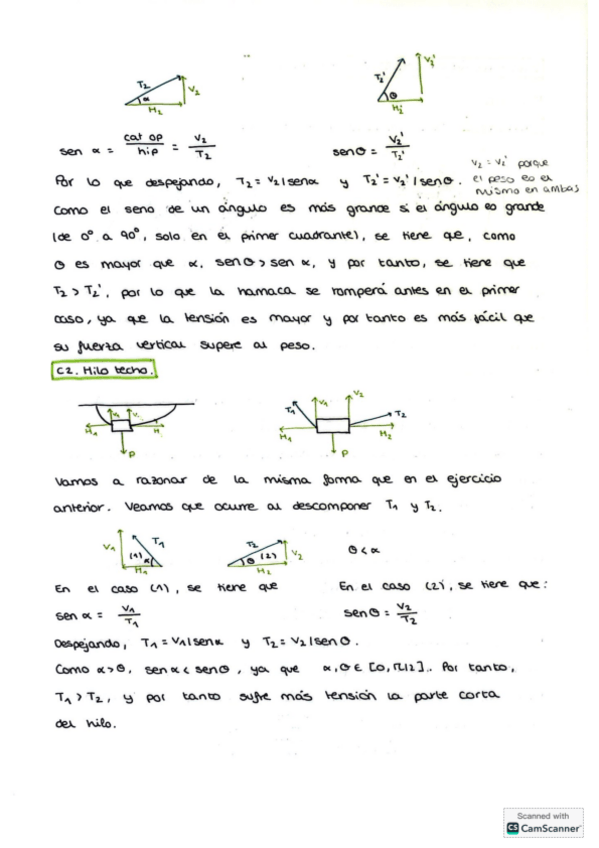 T₂ α V₂ H₂
T₂' θ V₂' H₂'
sen α = cat op / hip = V₂ / T₂
senθ = V₂' / T₂'
V₂ = V₂' porque
el peso es el
mismo en ambas
Por lo que despejando, T₂ = V₂/senα y T₂' = V₂'/senθ.
Como el seno de un ángulo es más grande si el ángulo es grande
(de 0° a 90°, solo en el primer cuadrante), se tiene que, como
θ es mayor que α, senθ > sen α, y por tanto, se tiene que
T₂ > T₂', por lo que la hamaca se romperá antes en el primer
caso, ya que la tensión es mayor y por tanto es más fácil que
su fuerza vertical supere al peso.
C2. Hilo techo.
H₁ V₁ V₂ H P
T₁ V₁ V₂ T₂ H₁ H₂ P
Vamos a razonar de la misma forma que en el ejercicio
anterior. Veamos que ocurre al descomponer T₁ y T₂.
V₁ (1) α T₁ H₁
T₂ θ (2) V₂ H₂
θ < α
En el caso (1), se tiene que
En el caso (2), se tiene que:
sen α = V₁ / T₁
senθ = V₂ / T₂
Despejando, T₁ = V₁/senα y T₂ = V₂/senθ.
Como α > θ, senα < senθ, ya que α, θ ∈ [0, π/2]. Por tanto,
T₁ > T₂, y por tanto sufre más tensión la parte corta
del hilo.
Scanned with
CS CamScanner